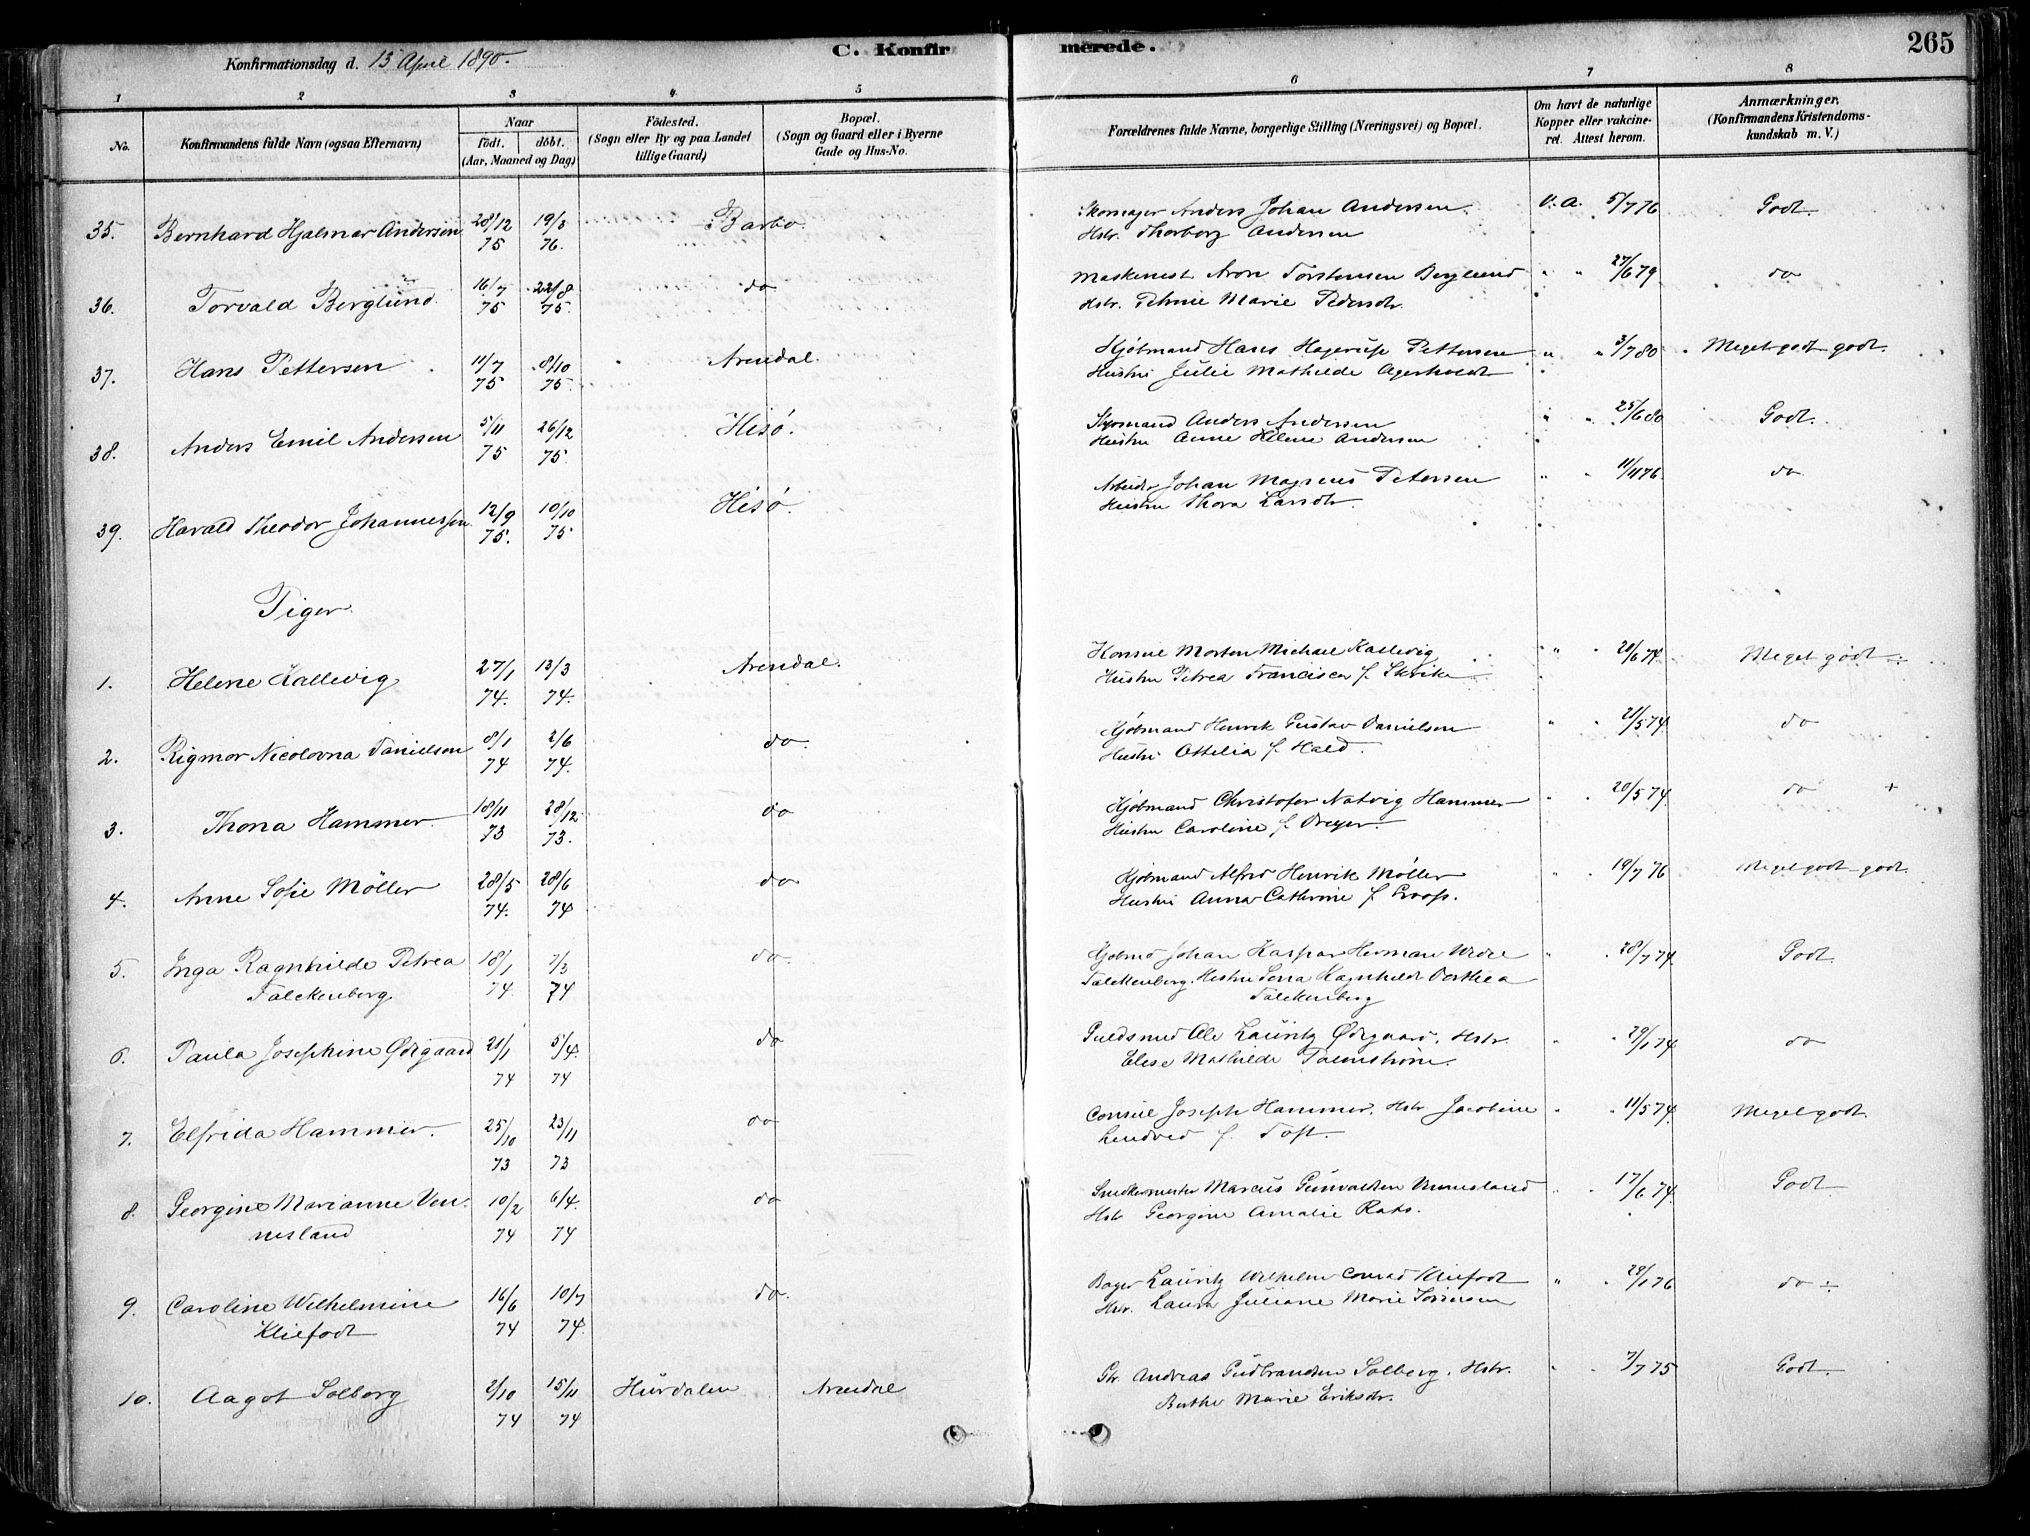 265
Konfirmationsdag d. 13 April 1890.
C. Konfirmerede.
1 2 3 4 5 6 7 8
No.
Konfirmandens fulde Navn (ogsaa Efternavn)
Naar
födt. döbt.
(Aar, Maaned og Dag)
Födested.
(Sogn eller By og paa Landet
tillige Gaard)
Bopæl.
(Sogn og Gaard eller i Byerne
Gade og Hus-No.
Forældrenes fulde Navne, borgerlige Stilling (Næringsvei) og Bopæl.
Om havt de naturlige
Kopper eller vakcine-
ret. Attest herom.
Anmærkninger.
(Konfirmandens Kristendoms-
kundskab m. V.)
35. Bernhard Hjalmar Andersen 28/12 75 19/3 76. Barbo. Skomager Anders Johan Andersen. v. a. 5/7 76 Godt.
Hstr. Thorborg Andersen
36. Torvald Berglund. 16/7 75 22/8 75. do Maskenist Aron Torstensen Berglund " " 27/6 79 do
Hstr. Petrine Marie Pedersdtr.
37. Hans Pettersen 11/7 75 8/10 75. Arendal. Kjöbmand Hans Hagerup Pettersen " " 3/7 80 Meget godt-godt.
Hustru Julie Mathilde Agerholdt
38. Anders Emil Andersen 5/11 75 26/12 75. Hisö. Anders Andersen " " 25/6 80 Godt.
Hustru Anne Helene Andersen
39. Harald Theodor Johannessen 12/9 75. 10/10 75 Hisö. Arbeider Johan Magnus Petersen " " 11/11 76. do
Hustru Thora Larsdtr.
Piger.
1. Helene Kallevig 27/1 74. 13/3 74. Arendal. Konsul Morten Michael Kallevig " " 20/6 74. Meget godt ÷
Hustru Petrea Francisca f.
2. Rigmor Nicolovna Danielson 8/1 74 2/6 74. do. Kjöbmand Henrik Gustav Danielsen " " 21/5 74. do
Hustru Ottilia f. Hald.
3. Thora Hammer. 18/11 73 28/12 73. do Kjöbmand Christofer Natvig Hammer " " 20/5 74. do +
Hustru Caroline f. Dreyer.
4. Anne Sofie Möller 28/5 74. 28/6 74 do Kjöbmand Alfred Henrik Möller " 19/7 76 Meget godt-godt.
Hustru Anna Cathrine f.
5. Inga Ragnhilde Petrea 18/1 74. 7/3 74 do. Kjöbmd Johan Kaspar Herman Wedel " 28/7 74. Godt.
Falckenberg. Falckenberg. Hustru Lena Ragnhilde Dorthea
Falckenberg
6. Paula Josephine Ödegaard 21/1 74 5/4. 74 do Guldsmed Ole Lauritz Ödegaard, Hstr. " 29/1 74. do
Elise Mathilde
7. Elfrida Hammer. 25/10 73 23/11 73 do Consul Joseph Hammer, Hstr. Jacobine " 11/5 74. Meget godt.
f. Toft.
8. Georgine Marianne Ven- 10/2 74 6/4. 74 do Snedkermester Marcus Gunvaldsen Vennesland " " 17/6 74. Godt
nesland Hstr Georgine Amalie
9. Caroline Wilhelmine 16/6 74 10/7 74. do. Bager Lauritz Wilhelm Conrad Kliefodt " 28/1 76 do ÷
Kliefodt Hstr. Laura Juliane Marie Sörensen
10. Aagot Solberg 2/10 74 15/11 74 Hurdalen Arendal Andreas Gudbrandsen Solberg, Hstr. " 7/7 75 Godt.
Berthe Marie Eriksdtr.